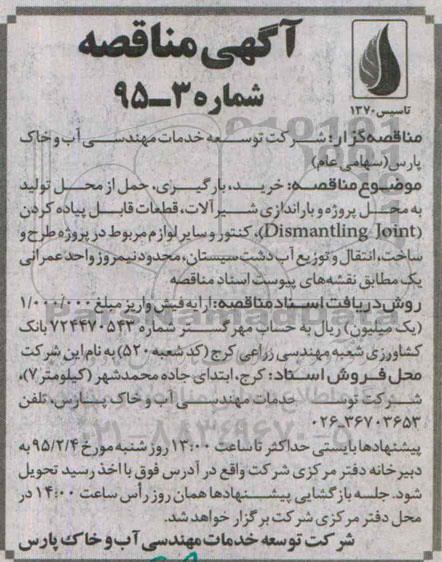 آگهی مناقصه
شماره ۳-۹۵
تاسیس ۱۳۷۰
مناقصه‌گزار: شرکت توسعه خدمات مهندسی آب و خاک
پارس (سهامی عام)
موضوع مناقصه: خرید، بارگیری، حمل از محل تولید
به محل پروژه و باراندازی شیرآلات، قطعات قابل پیاده کردن
(Dismantling Joint)، کنتور و سایر لوازم مربوط در پروژه طرح و
ساخت، انتقال و توزیع آب دشت سیستان، محدوده نیمروز واحد عمرانی
یک مطابق نقشه‌های پیوست اسناد مناقصه
روش دریافت اسناد مناقصه: ارایه فیش واریز مبلغ ۱/۰۰۰/۰۰۰
(یک میلیون) ریال به حساب مهر گستر شماره ۷۲۴۴۷۰۵۴۳ بانک
کشاورزی شعبه مهندسی زراعی کرج (کد شعبه ۵۲۰) به نام این شرکت
محل فروش اسناد: کرج، ابتدای جاده محمدشهر (کیلومتر ۷)،
شرکت توس خدمات مهندسی آب و خاک پارس، تلفن
۰۲۶-۳۶۷۰۳۶۵۳
پیشنهادها بایستی حداکثر تا ساعت ۱۳:۰۰ روز شنبه مورخ ۹۵/۲/۴ به
دبیرخانه دفتر مرکزی شرکت واقع در آدرس فوق با اخذ رسید تحویل
شود. جلسه بازگشایی پیشنهادها همان روز رأس ساعت ۱۴:۰۰ در
محل دفتر مرکزی شرکت برگزار خواهد شد.
شرکت توسعه خدمات مهندسی آب و خاک پارس
ParsNamadData
۰۲۱-۸۸۳۴۹۶۷۰-۵